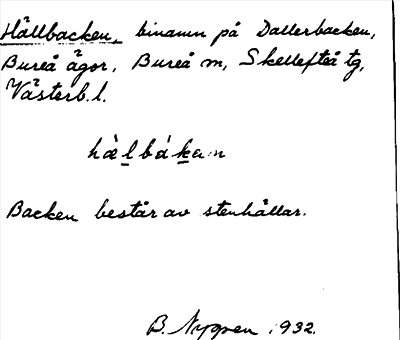 Hällbacken, binamn på Dallerbacken,
Bureå ägor, Bureå sn, Skellefteå tg,
Västerb. l.
hä̀lbákan
Backen består av stenhällar.
B. Nygren 1932.